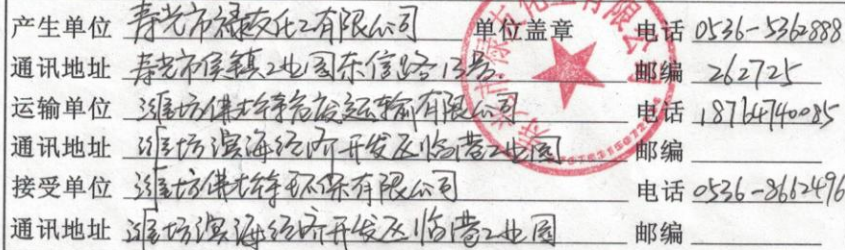 产生单位 寿光市禄友化工有限公司 单位盖章 电话 0536-5362888
通讯地址 寿光市侯镇工业园东信路13号 邮编 262725
运输单位 潍坊佛士特危废运输有限公司 电话 18764740085
通讯地址 潍坊滨海经济开发区临港工业园 邮编
接受单位 潍坊佛士特环保有限公司 电话 0536-8662496
通讯地址 潍坊滨海经济开发区临港工业园 邮编